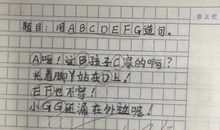 题目：用ABCDEFG造句。
A呀！这B孩子C家的啊？
光着脚丫站在D上！
EF也不穿！
小GG还漏在外边呢！